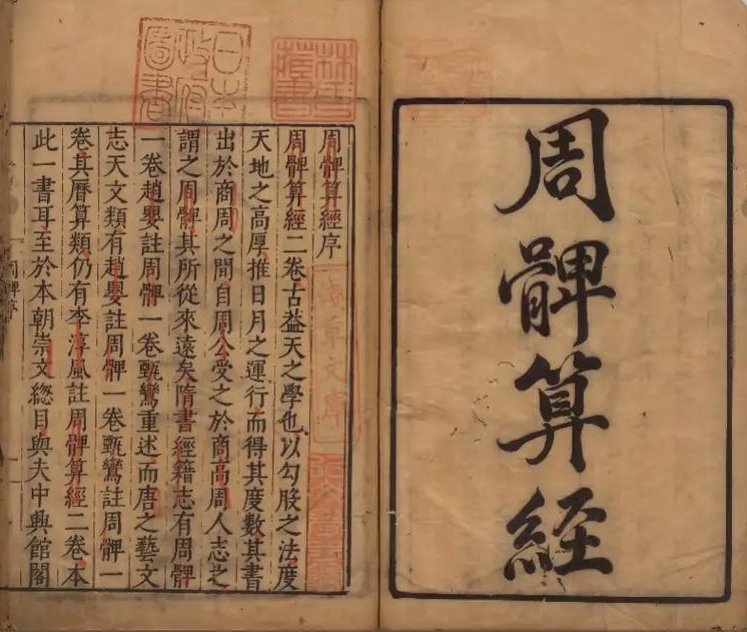 周髀算経
林氏藏書
日本政府圖書
周髀算經序
周髀算經二卷古蓋天之學也以勾股之法度
天地之高厚推日月之運行而得其度數其書
出於商周之間自周公受之於商高周人志之
謂之周髀其所從來遠矣隋書經籍志有周髀
一卷趙嬰註周髀一卷甄鸞重述而唐之藝文
志天文類有趙嬰註周髀一卷甄鸞註周髀一
卷其曆算類仍有李淳風註周髀算經二卷本
此一書耳至於本朝崇文緫目與夫中興館閣
淺草文庫